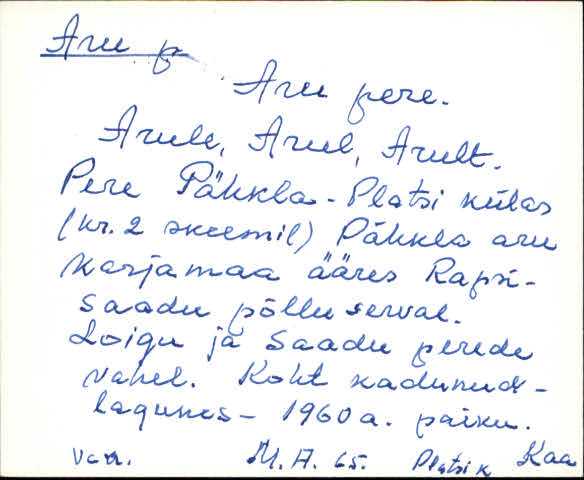 Aru p
Aru pere.
Arule, Arul, Arult.
Pere Pähkla-Platsi külas
(kr. 2 skeemil) Pähkla aru
karjamaa ääres Rapsi-
saadu põllu serval.
Loigu ja Saadu perede
vahel. Koht kadunud -
lagunes - 1960 a. paiku.
Van. M. A. 65. Platsi k Kaa